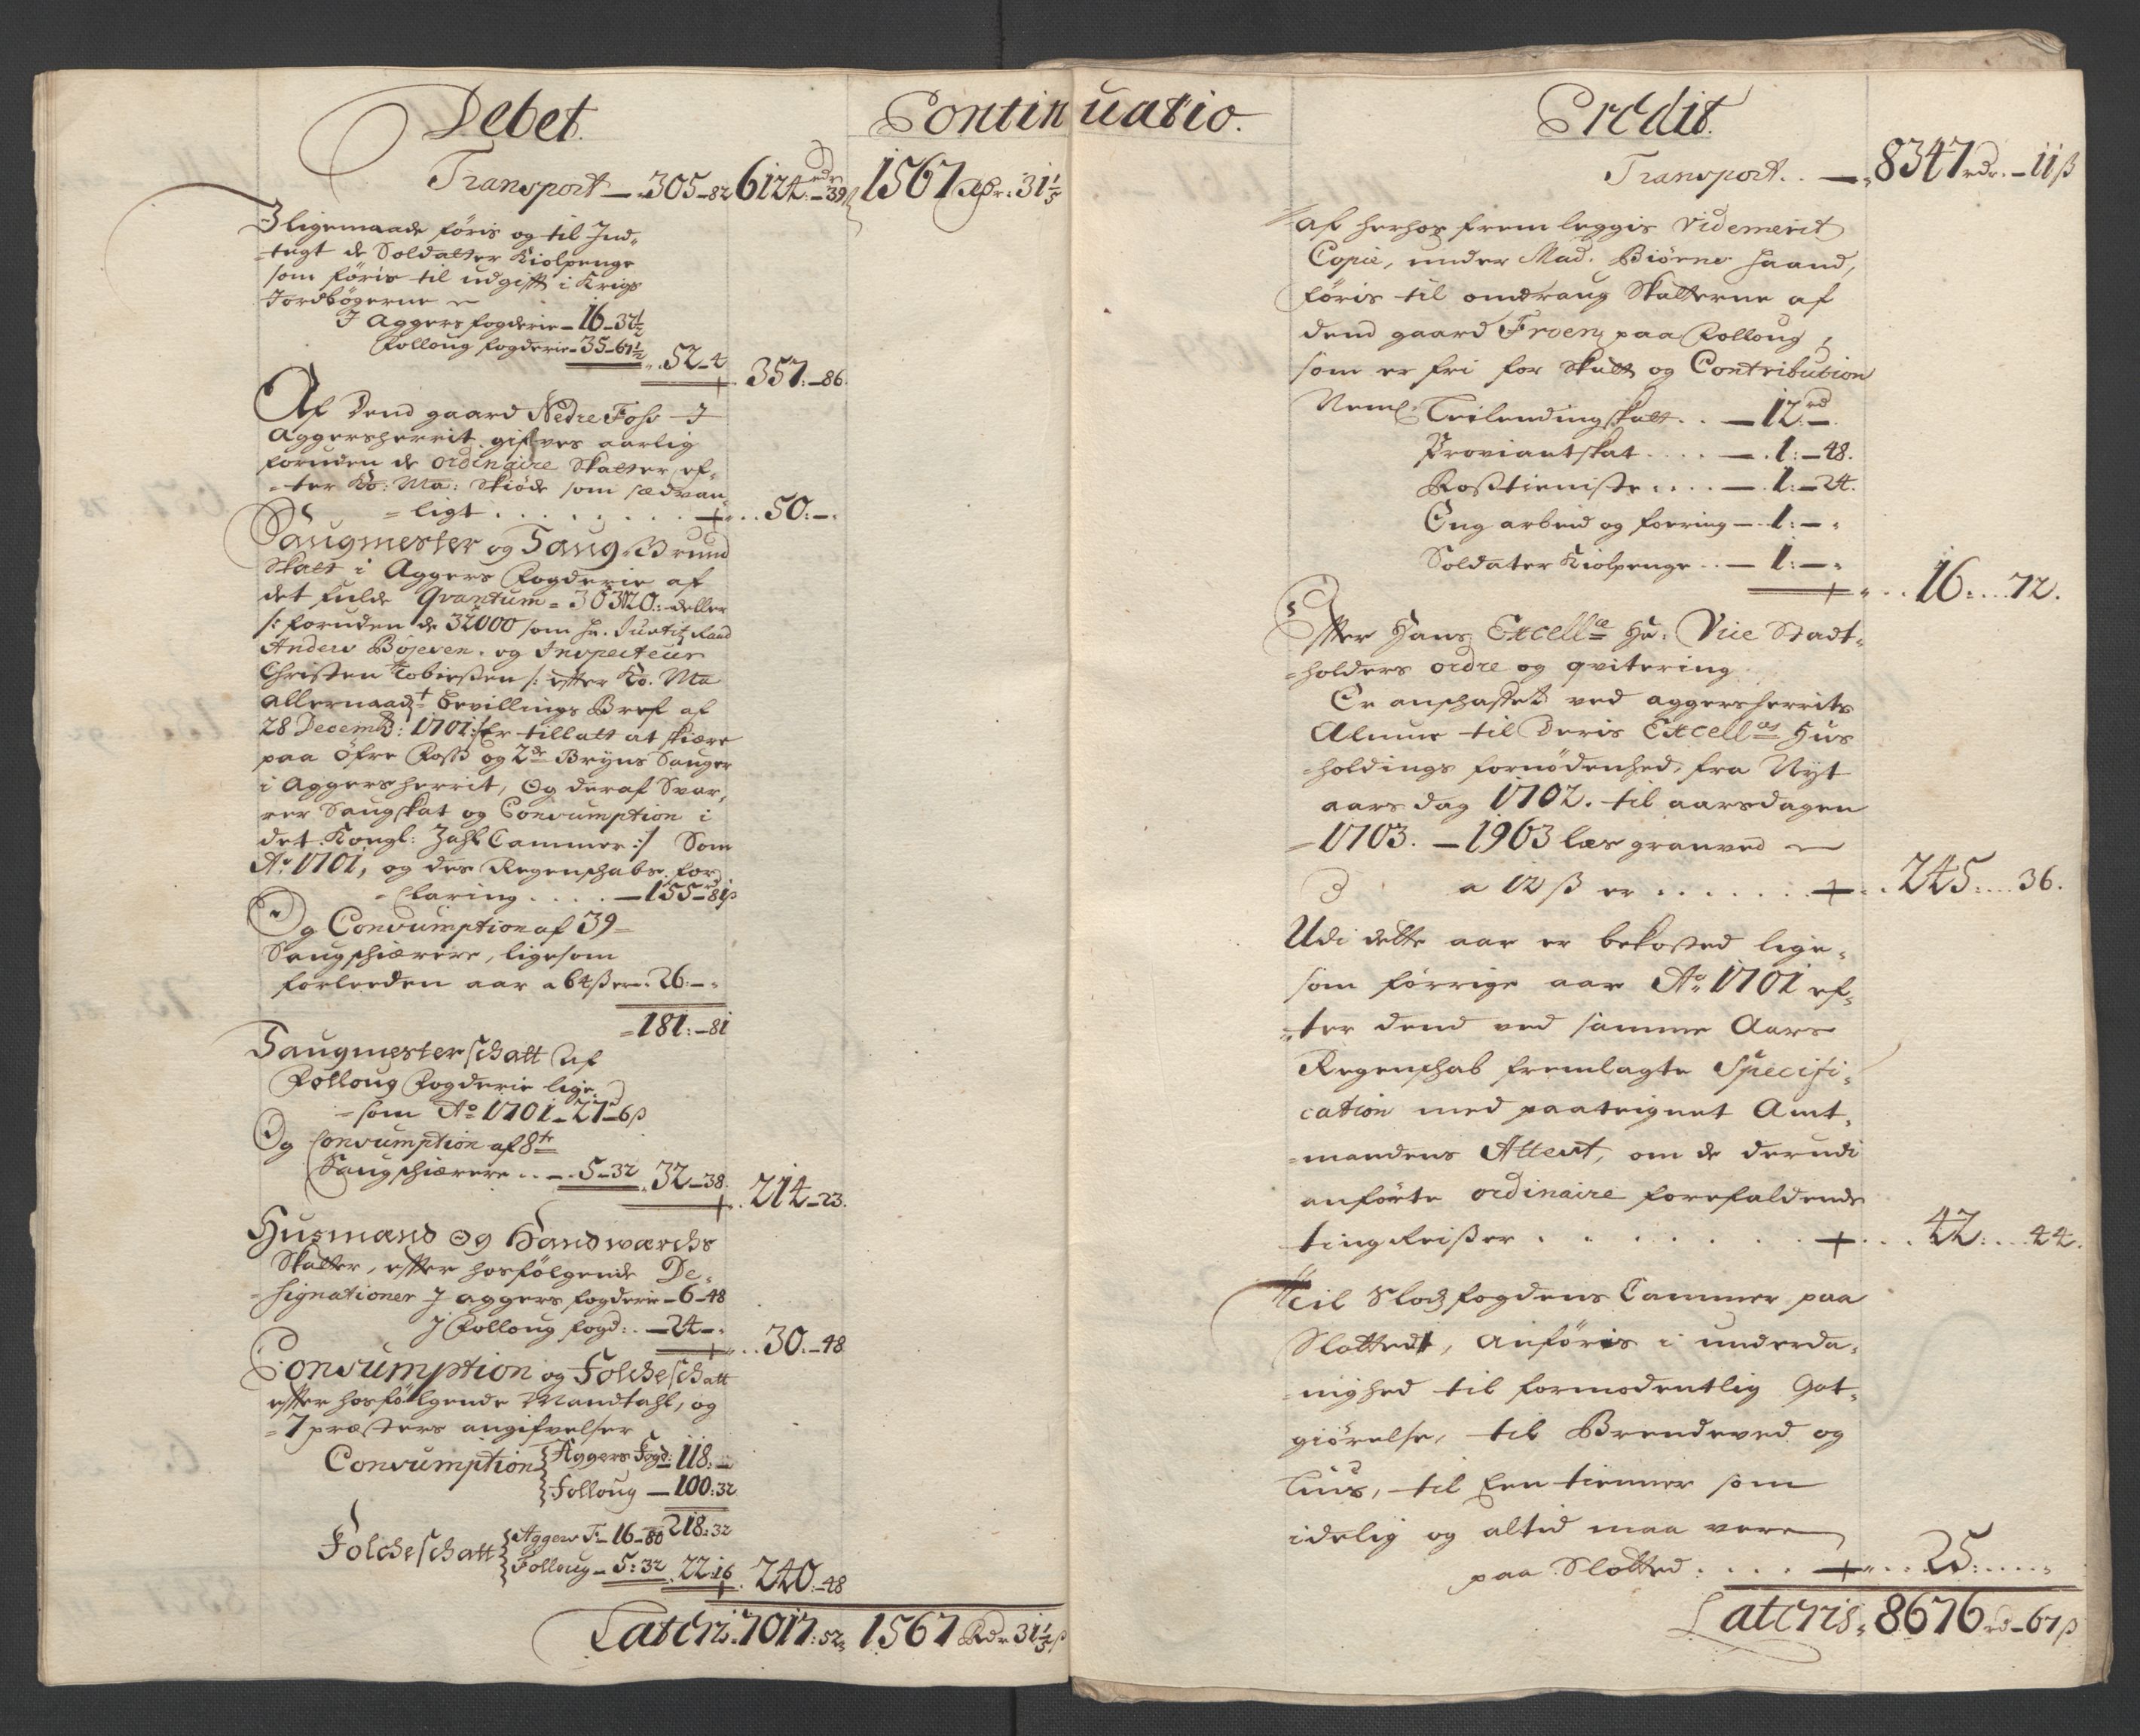 Debet.
Continuatio.
Transport — 305–82 6124 rdr–39 ß 1567 Rdr. 31 1/5
Iligemaade föris og til Ind-
tegt de Soldatter Kiolpenge
som föris til udgifft i Krigs
Jordbögerne
I Aggers fogderie – 16–32 1/2
Folloug fogderie – 35–67 1/2 52–4 357:–86.
Af Dend gaard Nedre Foss I
Aggersherrit gifves aarlig
foruden de ordinaire Skatter, ef-
ter Ko: Ma: Skiöde som sædvan
ligt . . . . . . . 50:–.
Saugmester og Saug Brund
Skatt i Aggers Fogderie af
det fulde Qvantum
/: foruden de 32000 som Hr. Justitz Raad
Anders Bojesen, og Inspecteur
Christen Tobiessen /: effter Ko. Ma
allernaad: bevillings Bref af
28 Decemb: 1701:/ Er tilladt at skiære
paa öfre Foss og 2de Bryns Sauger
i Aggersherrit, Og deraf Svar,
rer Saugskat og Consumption i
det Kongl: Zahl Cammer :/ Som
Ao 1701, og des Regenschabs for
claring . . . . — 155–81 ß
Og Consumption af 39
Saugschiærere, ligesom
forleeden aar a 64 ß er – 26:–
181:–81
Saugmester schatt Af
Folloug Fogderie lige
som Ao 1701 – 27–6 ß
Og Consumption af 8te
Saugschiærere . . – 5–32 32–38. 214–23.
Husmænd og Handwærchs
Skatter, effter hosfölgende De-
signationer I aggers fogderie – 6–48
I Folloug fogd: . — 24–. . . 30.–48
Consumption og Folcheschatt
effter hosfölgende Mandtahl, og
7 præsters angifvelser
Consumption { Aggers Fogd: 118:–
{ Folloug — 100:32
218:32
Folcheschatt { Aggers F: 16–80
{ Folloug – 5:32 22:16 240.–48
Lateris. 7017:52 1567 Rdr 31 1/5 ß
Credit.
Transport . . — 8347 rdr. – 11 ß
af herhos fremleggis Videmerit
Copie, under Mad. Biörns haand,
föris til omdraug Skatterne af
dend gaard Froen paa Folloug,
som er fri for Skatt og Contribution
Neml: Leilendingskatt . . — 12 rd –.
Proviantskat . . . . — . 1:–48.
Rosstienisste . . . . — . 1:–24.
Eng arbeid og foering — . 1:–.
Soldater Kiolpenge . . — 1:–.
. . 16. . . . 72.
Effter Hans Excellce Hr: Vice Stadt-
holders ordre og qvitering
Er anschaffet ved aggersherrits
Almue til Deris Excellces Hus
holdings fornödenhed, fra Nyt
aars dag 1702. til aarsdagen
1703. – 1963 læs granved
a 12 ß er . . . . . . . 245. . . . 36.
Udi dette aar er bekosted lige-
som förrige aar Ao 1701 ef-
ter dend ved samme Aars
Regenschab fremlagte Specifi-
cation med paateignet Amt-
mandens Attest, om de derudi
anförte ordinaire forefaldende
ting Reisser . . . . . . . 42. . . 44.
Til Slodz fogdens Cammer paa
Slottedt, anföris i underda-
nighed til formodentlig Got-
giörelse, til Brendeved og
Lius, til Een tienner som
idelig og altid maa vere
paa Slotted . . . . . . 25. . . . .
Lateris. 8676 rd – 67 ß